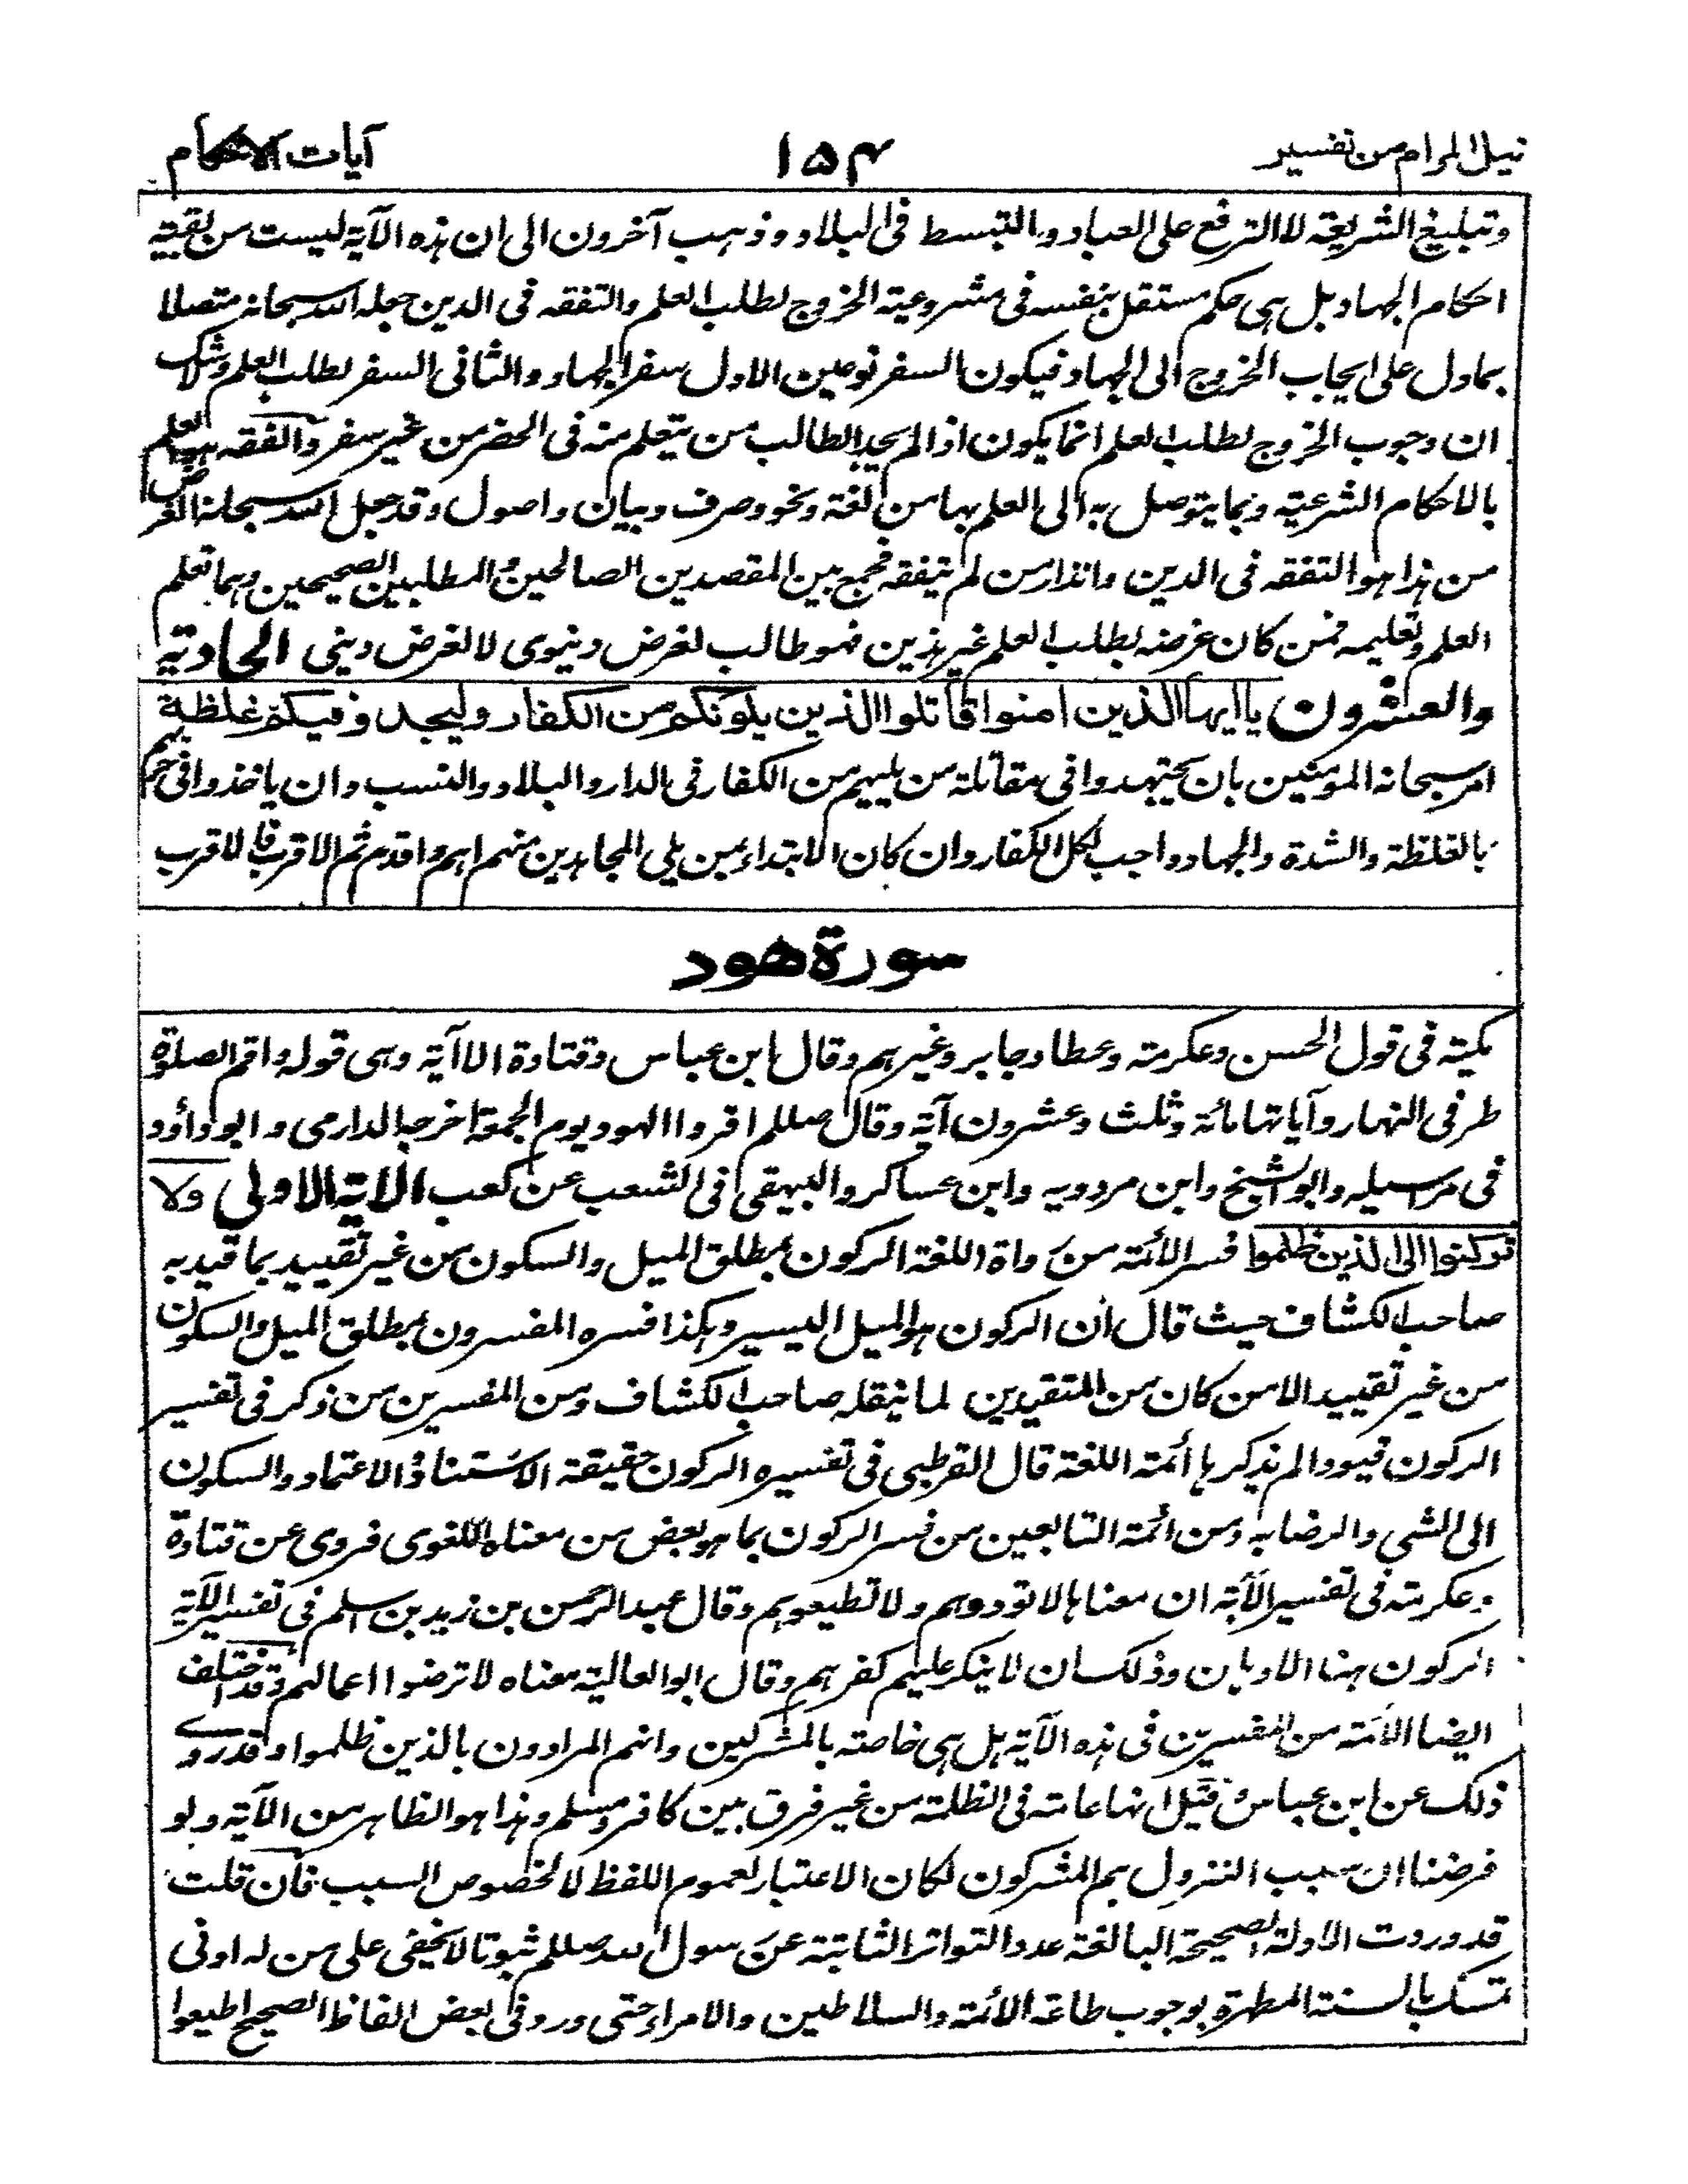 نيل المرام من تفسير ١٥٤ آيات الاحكام
وتبليغ الشريعة لا الترفع على العباد والتبسط فى البلاد وذهب آخرون الى ان هذه الآية ليست من بقية
احكام الجهاد بل هى حكم مستقل بنفسه فى مشروعية الخروج لطلب العلم والتفقه فى الدين جعله الله سبحانه متصلا
بما دل على ايجاب الخروج الى الجهاد فيكون السفر نوعين الاول سفر الجهاد والثانى السفر لطلب العلم ولا شك
ان وجوب الخروج لطلب العلم انما يكون اذا لم يجد الطالب من يتعلم منه فى الحضر من غير سفر والفقه هو العلم
بالاحكام الشرعية وبما يتوصل به الى العلم بها من لغة ونحو وصرف وبيان واصول وقد جعل الله سبحانه الغرض
من هذا هو التفقه فى الدين وانذار من لم يتفقه فجمع بين المقصدين الصالحين والمطلبين الصحيحين وهما تعلم
العلم وتعليمه فمن كان غرضه بطلب العلم غير هذين فهو طالب لغرض دنيوى لا لغرض دينى الحادية
والعشرون يا ايها الذين امنوا قاتلوا الذين يلونكم من الكفار وليجدوا فيكم غلظة
امر سبحانه المؤمنين بان يجتهدوا فى مقاتلة من يليهم من الكفار فى الدار والبلاد والنسب وان ياخذوا فى حربهم
بالغلظة والشدة والجهاد واجب لكل الكفار وان كان الابتداء بمن يلى المجاهدين منهم اهم واقدم ثم الاقرب فالاقرب
سورة هود
مكية فى قول الحسن وعكرمة وعطا وجابر وغيرهم وقال ابن عباس وقتادة الا آية وهى قوله واقم الصلوة
طرفى النهار وآياتها مائة وثلث وعشرون آية وقال صللم اقروا الهود يوم الجمعة اخرجه الدارمى وابوداؤد
فى مراسيله وابو الشيخ وابن مردويه وابن عساكر والبيهقى فى الشعب عن كعب الاية الاولى ولا
تركنوا الى الذين ظلموا فسر الأئمة من رواة اللغة الركون بمطلق الميل والسكون من غير تقييد بما قيد به
صاحب الكشاف حيث قال ان الركون هو الميل اليسير وهكذا فسره المفسرون بمطلق الميل والسكون
من غير تقييد الا من كان من المتقيدين لما ينقله صاحب الكشاف ومن المفسرين من ذكر فى تفسير
الركون قيودا لم يذكرها أئمة اللغة قال القرطبى فى تفسيره الركون حقيقة الاستناد والاعتماد والسكون
الى الشى والرضا به ومن ائمة التابعين من فسر الركون بما هو بعض من معناه اللغوى فروى عن قتادة
وعكرمة فى تفسير الآية ان معناها لا تودوهم ولا تطيعوهم وقال عبد الرحمن بن زيد بن اسلم فى تفسير الآية
الركون هنا الادهان وذلك ان لا ينكر عليهم كفرهم وقال ابو العالية معناه لا ترضوا اعمالهم وقد اختلف
ايضا الأئمة من المفسرين فى هذه الآية هل هى خاصة بالمشركين وانهم المرادون بالذين ظلموا وقد روے
ذلك عن ابن عباس وقيل انها عامة فى الظلمة من غير فرق بين كافر ومسلم وهذا هو الظاهر من الآية ولو
فرضنا ان سبب النزول هم المشركون لكان الاعتبار لعموم اللفظ لا لخصوص السبب فان قلت
قد وردت الادلة الصحيحة البالغة عدد التواتر الثابتة عن رسول الله صللم ثبوتا لا يخفى على من له ادنى
تمسك بالسنة المطهرة بوجوب طاعة الأئمة والسلاطين والامراء حتى ورد فى بعض الفاظ الصحيح اطيعوا